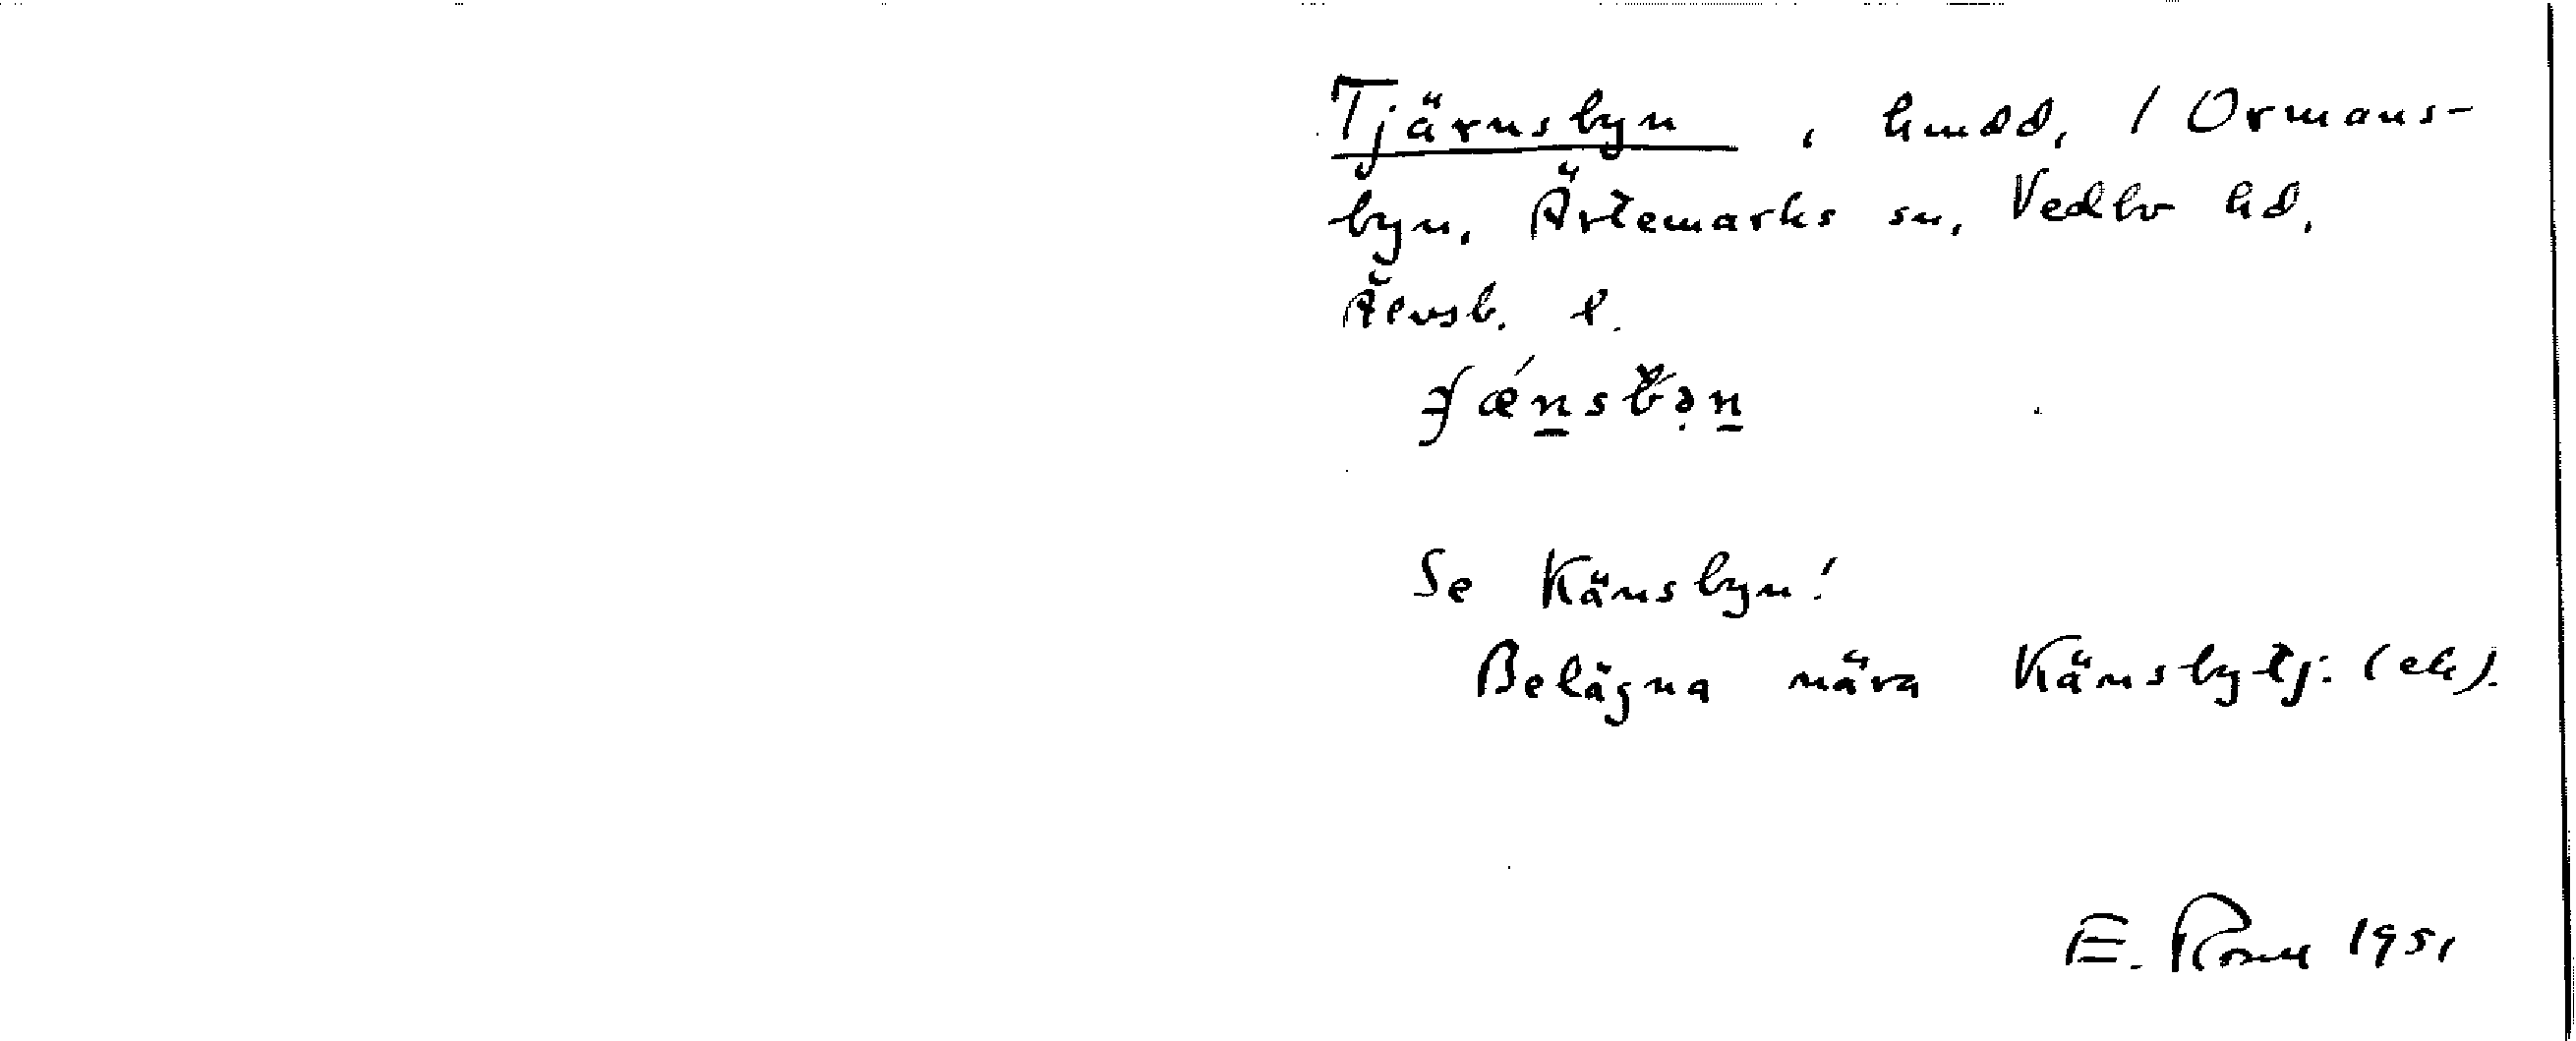 Tjärnsbyn, hmdd, / Ormans-
byn, Ärtemarks sn, Vedbo hd,
Älvsb. l.
Se Känsbyn!
Belägna nära Känsbytj. (ek).
E. 1951